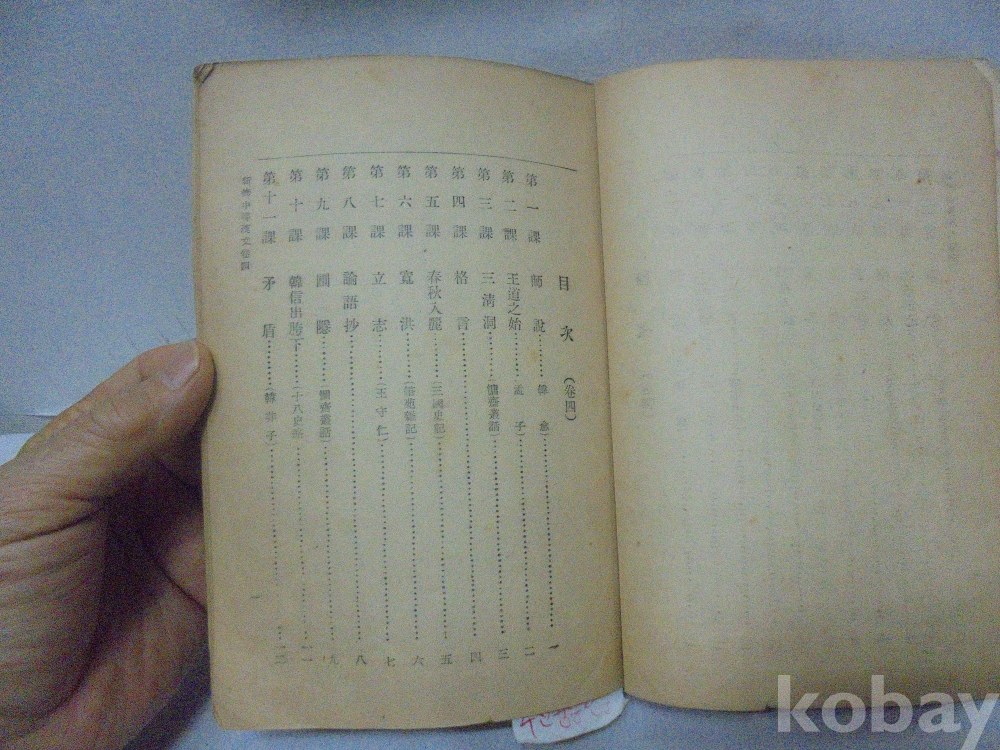 目次 (卷四)
第一課 師說………韓愈………一
第二課 王道之始………孟子………二
第三課 三淸洞………慵齋叢話)………三
第四課 格言………四
第五課 春秋入麗………(三國史記)………五
第六課 寬洪………六
第七課 立志………(王守仁)………七
第八課 論語抄………八
第九課 圃隱………(慵齋叢話)………九
第十課 韓信出胯下………(十八史略
第十一課 矛盾………(韓非子)
中等漢文卷四
一
kobay